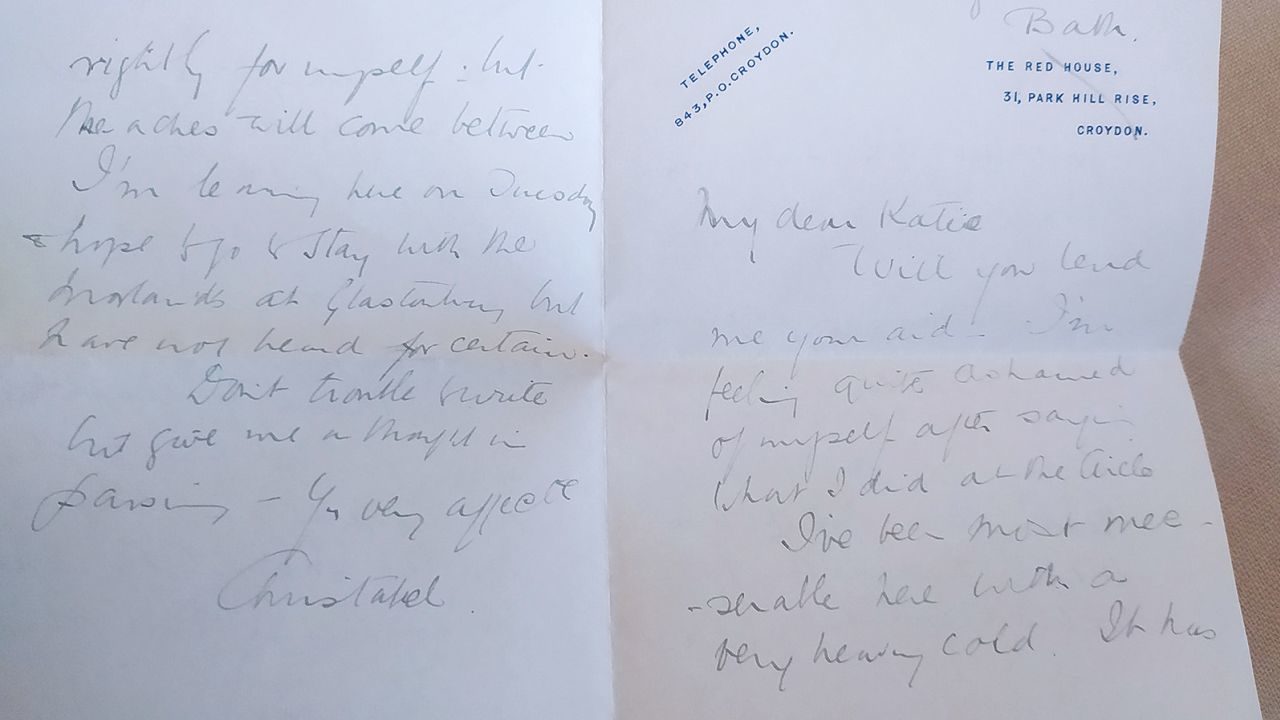 Bath.
TELEPHONE,
843, P.O. CROYDON.
THE RED HOUSE,
31, PARK HILL RISE,
CROYDON.
My dear Katie
Will you lend
me your aid - I'm
feeling quite ashamed
of myself after saying
what I did at the Circle
I've been most mee -
- serable here with a
very heavy cold. It has
rightly for myself - but
the aches will come between
I'm leaving here on Tuesday
& hope to go & stay with the
at Glastonbury but
have not heard for certain.
Don't trouble to write
but give me a thought in
passing - Yr very affecte
Christabel.